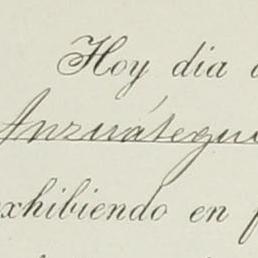 Hoy dia
Anzuátegui
exhibiendo en